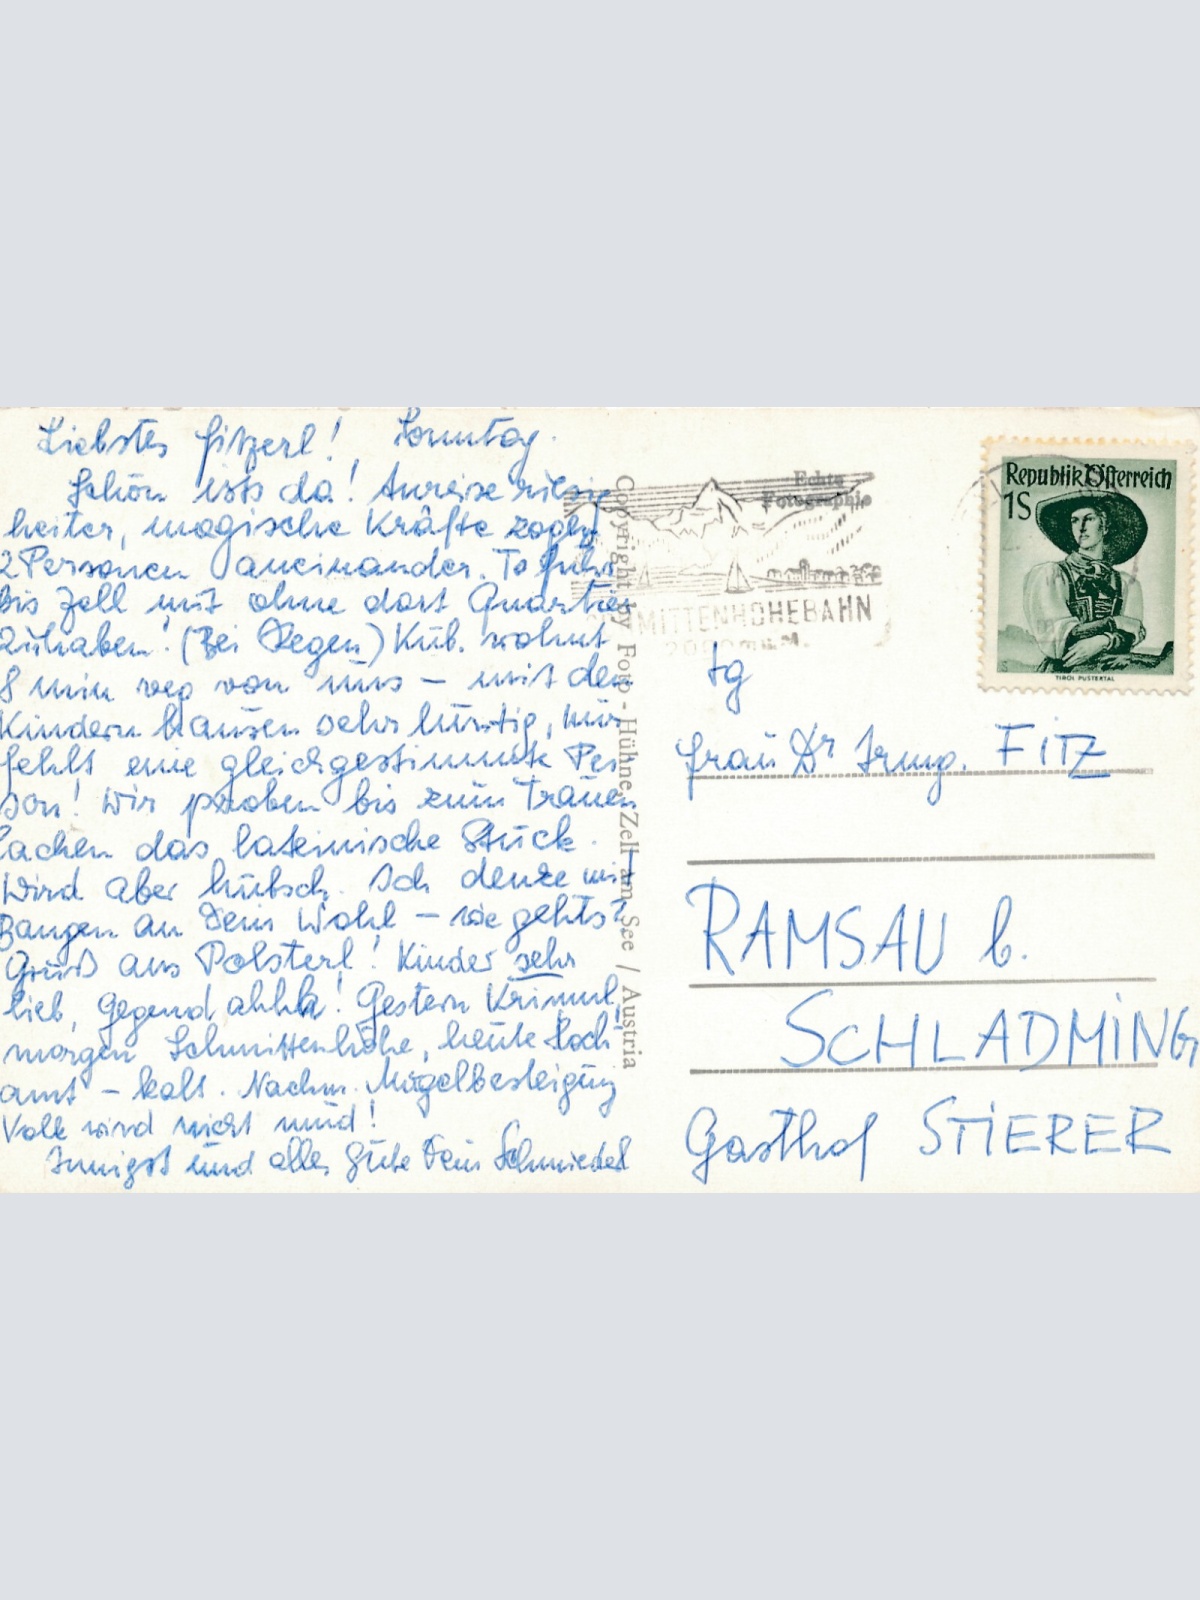 Liebstes Fitzerl! Sonntag.
Schön ists da! Anreise riesig
heiter, magische Kräfte zogen
2 Personen aneinander. To fuhr
bis Zell mit ohne dort Quartier
zuhaben! (Bei Regen) Kub. wohnt
8 min weg von uns – mit den
Kindern hausen sehr lustig, mir
fehlt eine gleichgestimmte Per
son! Wir proben bis zum Tränen
lachen das lateinische Stück.
Wird aber hübsch. Ich denke mit
Bangen an Dein Wohl – wie gehts?
Gruß ans Polsterl! Kinder sehr
lieb, Gegend ahhh! Gestern Kriml,
morgen Schmittenhöhe, heute Hoch
amt – kalt. Nachm. Mugelbesteigung
Volk wird nicht müd!
Innigst und alles Gute Dein Schmiedel
Copyright by Foto - Hühne, Zell am See / Austria
Echte
Fotographie
MITTENHÖHEBAHN
2000 m ü.M.
Republik Österreich
1S
TIROL PUSTERTAL
tg
Frau Dr Irmg. FITZ
RAMSAU b.
SCHLADMING
Gasthof STIERER